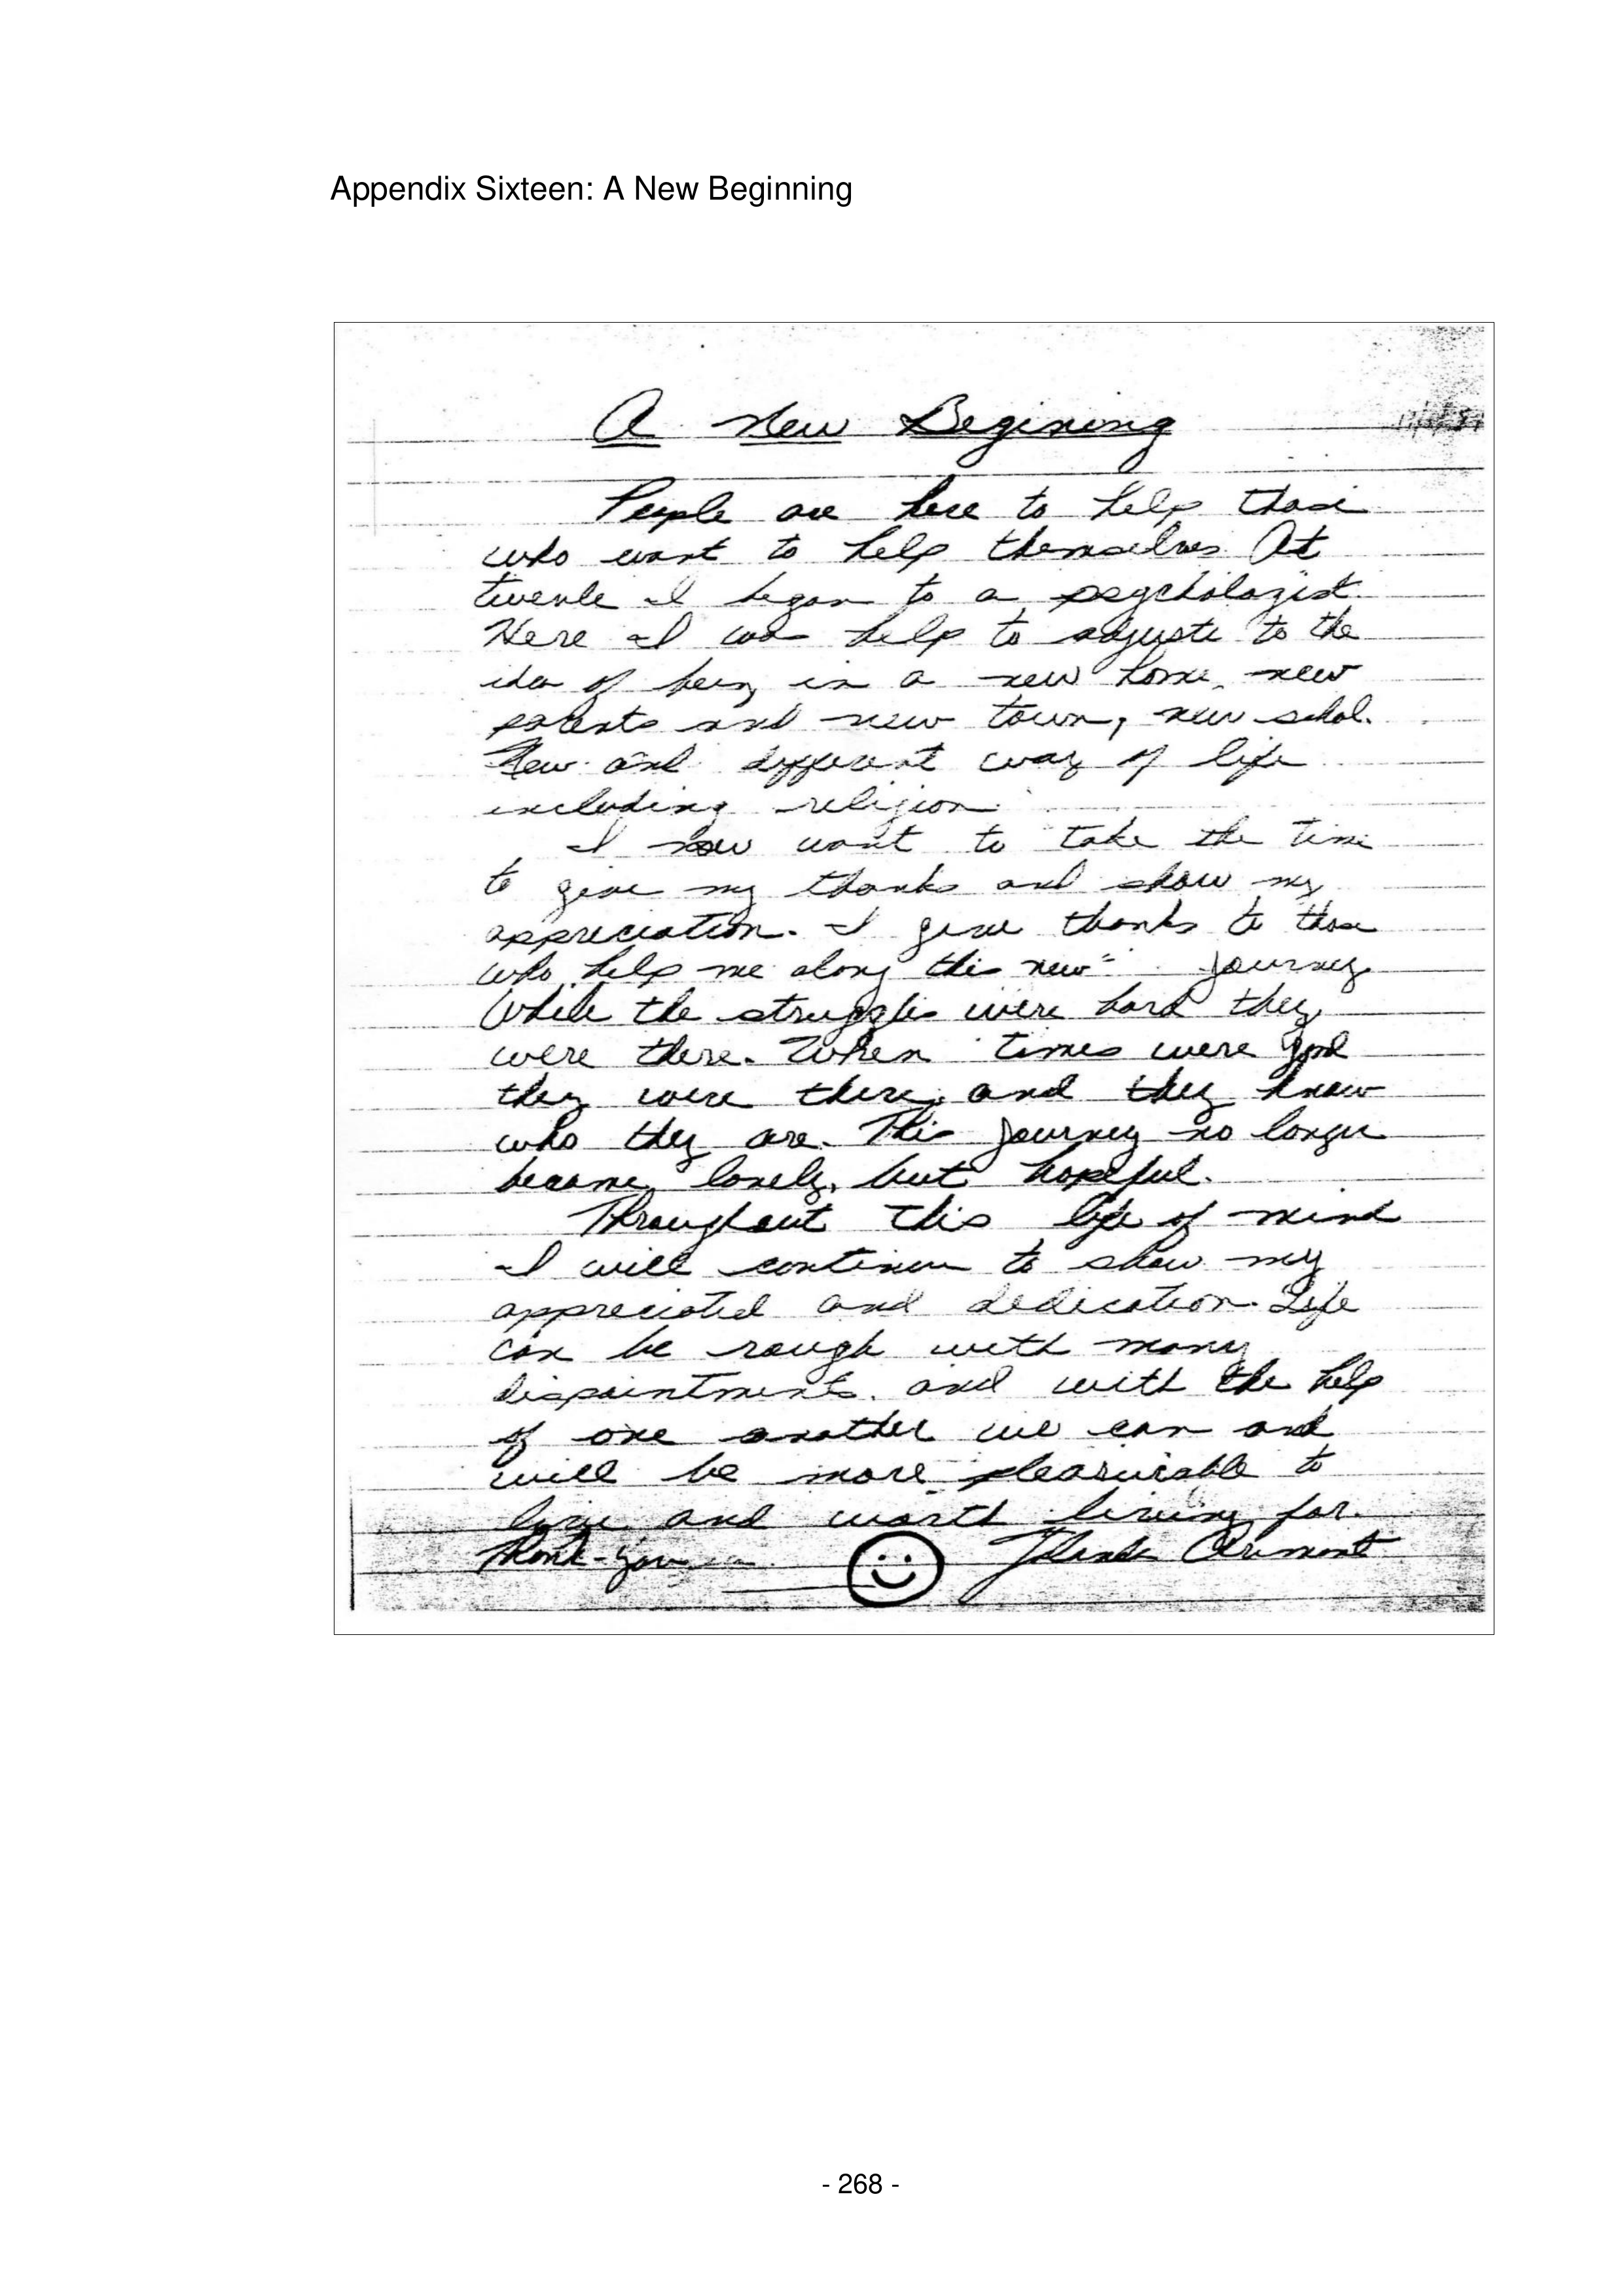 Appendix Sixteen: A New Beginning
A New Begining
People are here to help those
who want to help themselves. At
twevle I began to a psychologist.
Here I was help to adjuste to the
idea of being in a new home, new
parents and new town, new schol.
New and different way of life
including religion.
I now want to take the time
to give my thanks and show my
appreciation. I give thanks to those
who help me along this new journey
While the struggles were hard they
were there. When times were good
they were there, and they know
who they are. This journey no longer
became lonely, but hopeful.
Throughout this life of mind
I will continue to show my
appreciated and dedication. Life
can be rough with many
dispaintments. and with the help
of one another we can and
will be more pleasurable to
live and worth living for.
Thank-you
- 268 -